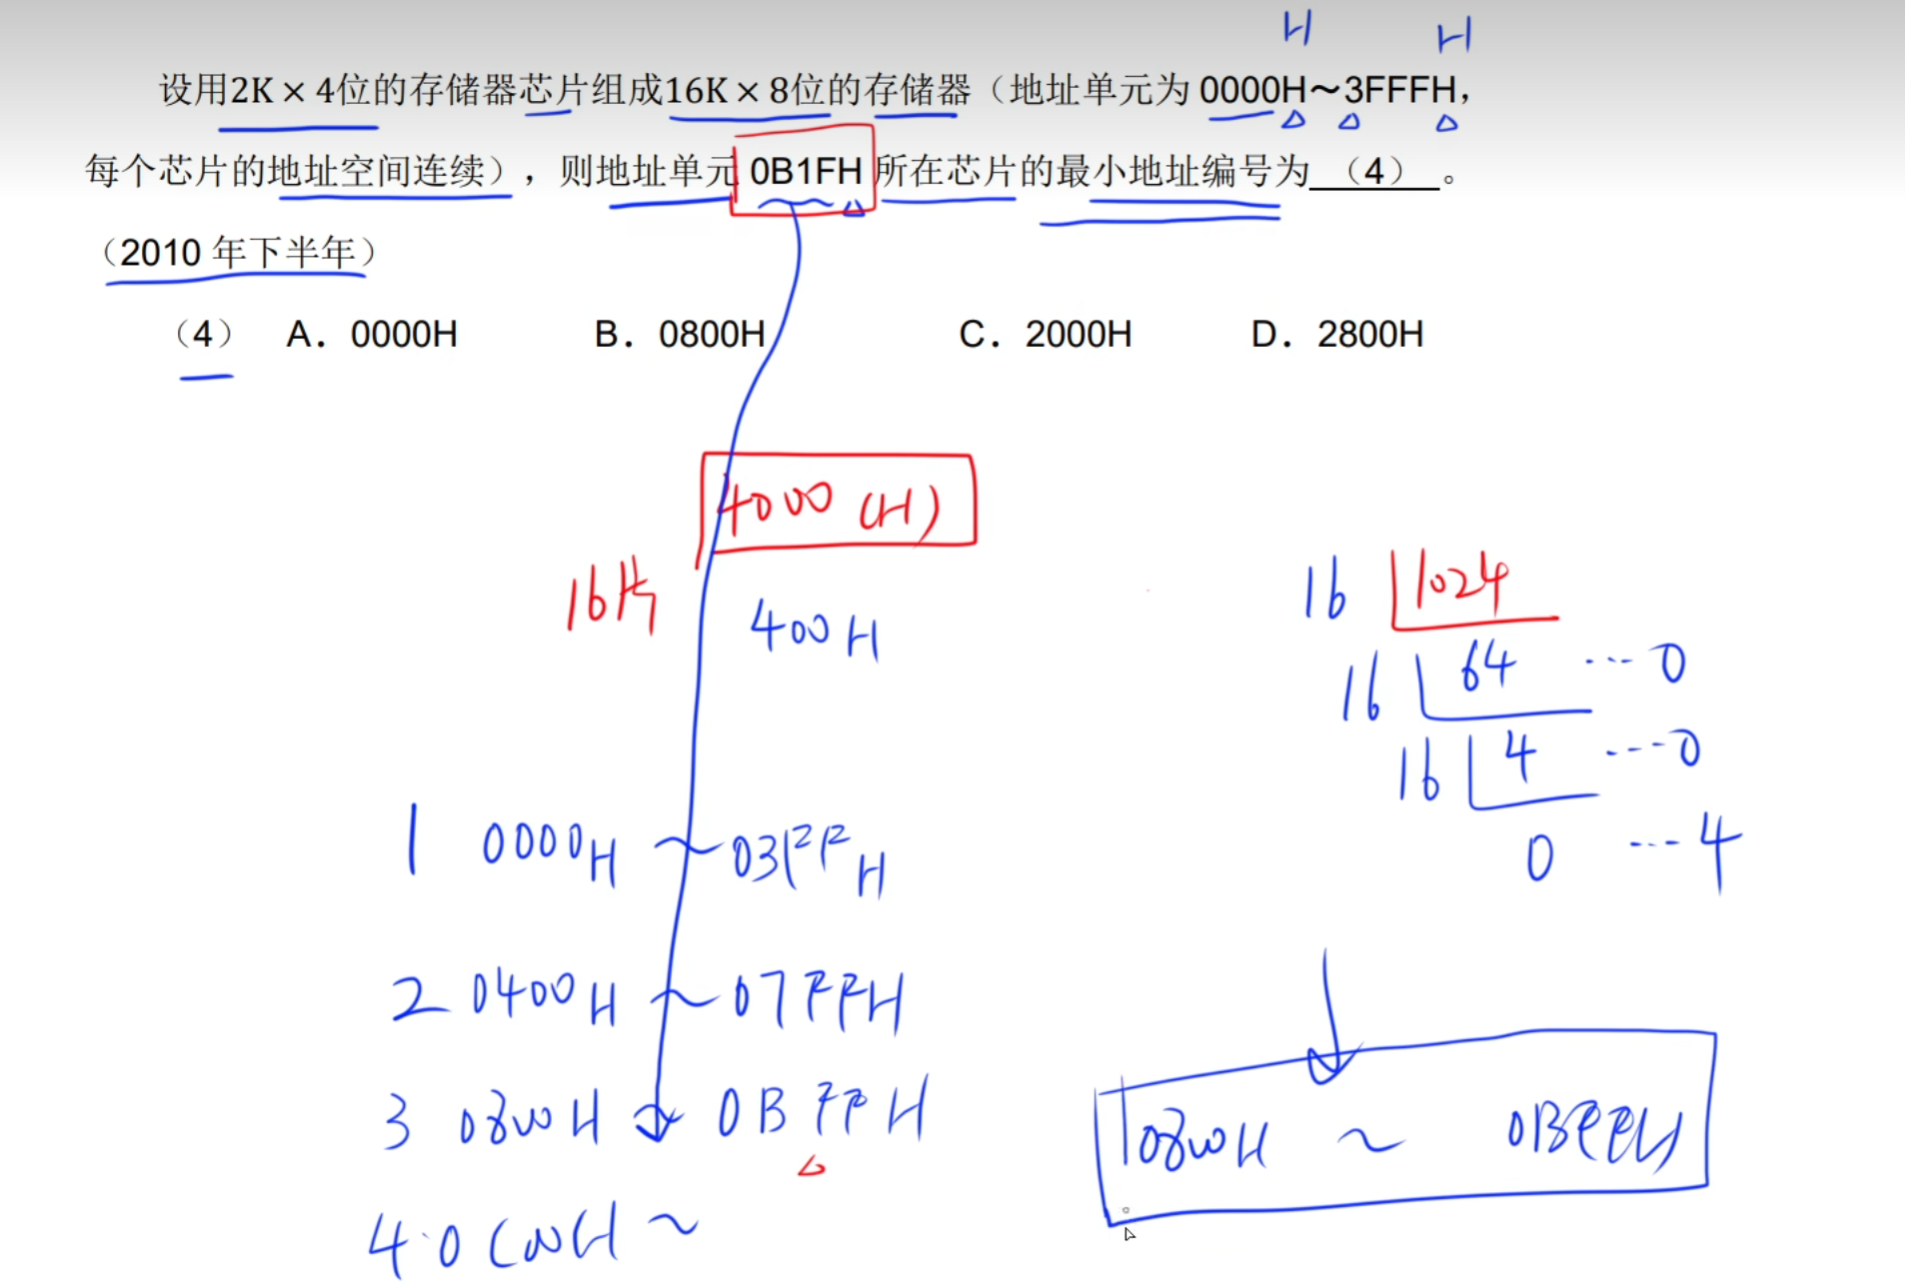 H H
设用2K × 4位的存储器芯片组成16K × 8位的存储器（地址单元为 0000H～3FFFH，
每个芯片的地址空间连续），则地址单元 0B1FH 所在芯片的最小地址编号为 （4） 。
（2010 年下半年）
（4） A．0000H B．0800H C．2000H D．2800H
4000 (H)
16片
400H
16 1024
16 64 ... 0
16 4 ... 0
0 ... 4
1 0000H ~ 03FFH
2 0400H ~ 07FFH
3 0800H 0BFFH
4 0C00H ~
0800H ~ 0BFFH